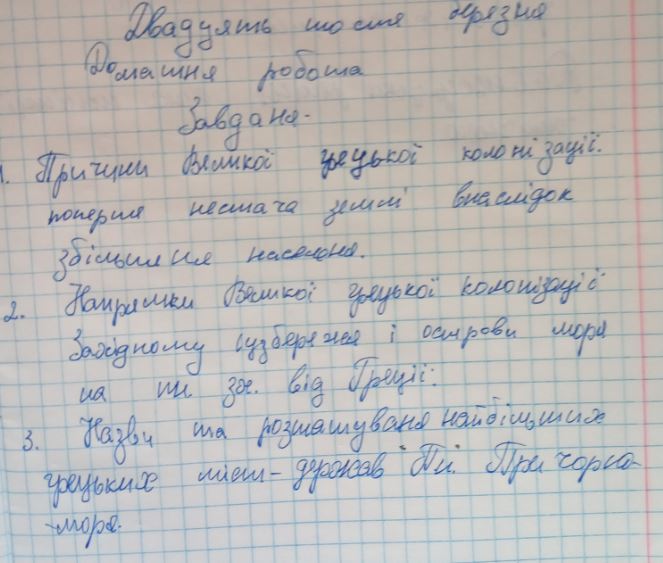 Двадцять шосте березня
Домашня робота
Завданя.
1. Причини Великої грецької колонізації.
поперше нестача землі внаслідок
збільшеня населеня.
2. Напрямки Великої грецької колонізації
Західному узбережжя і острови моря
на пн. зх. від Греції.
3. Назви та розташуваня найбільших
грецьких міст-держав Пн. Причорно-
-моря.